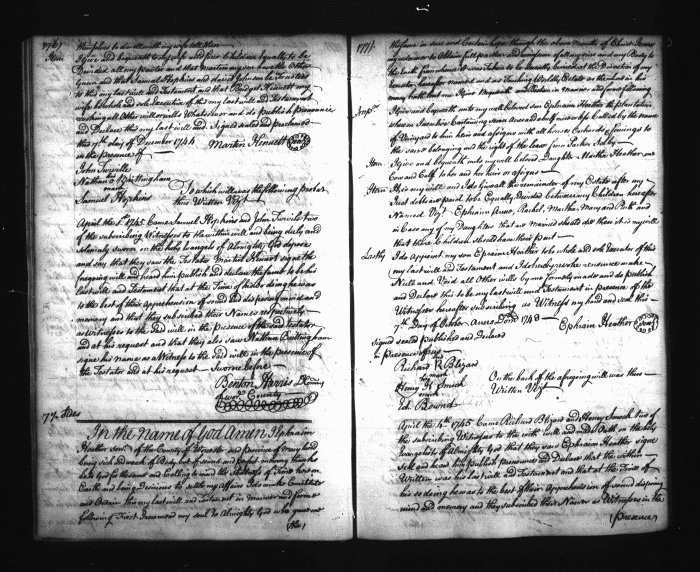 (776)
themselves to dwell with my wife till then
Item I Give and bequeath to my wife and five Children Equally to be
Divided all my and that Martin my son have the Other
Gunn and that Samuel Hopkins and be Trustees
to this my last will and Testament and that Bridget Kennett my
wife Whole and sole Executrix of this my last will and Testament
revoking all Other will or wills Whatsoever and do publish pronounce
and Declare this my last will and Signed sealed and pronounced
this 7th day of December 1744 Martin Kennett Seal
in the presence off
John
Nathan Brittingham
mark
Samuel Hopkins To which will was the following probat
then Written Vizt
April the 5th 1745 Came Samuel Hopkins and John
of the subscribing Witnesses to the within will and being duly and
Solemnly sworn on the holy Evangels of Almighty God deposes
and say that they saw the Testator Martin Kennett sign the
foregoing will and heard him publish and declare the same to be his
last will and Testament that at the Time of his so doing he was
to the best of their apprehension of sound and disposing mind and
memory and that they subscribed their Names respectively
as Witnesses to the said will in the presence of the said testator
and at his request and that they also saw Nathan Brittingham
sign his name as a Witness to the said will in the presence of
the Testator and at his request Sworn before
Benton Harris Dty Comry
Worr County
77 Sides
In the Name of God Amen I Ephraim
Heather senr of the County of Worcester and province of Maryland
being sick and weak of Body but of sound and perfect memory thanks
be to God for the same and Calling to mind the state of Life here on
Earth and being Desirous to settle my affairs Do make Constitute
and Ordain this my last will and Testament in Manner and form
following First I recommend my soul to Almighty God who gave me
(the)
(777)
the same in sure and Certain hope through the alone Merits of Christ Jesus
my saviour to Obtain full pardon and remission of all my sins and my Body to
the Earth from whence it was Taken to be decently buried at the Discretion of my
Executor hereafter named and as Touching Worldly Estate as the Lord in his
mercy hath lent me I Give Bequeath and Ordain in Manner and form following
Imprs I Give and bequeath unto my well beloved son Ephraim Heather the plantation
whereon I Containing Acres and a half more or less Called by the name
of Vineyard to him heirs and assigns with all houses Orchards & fencings to
the same belonging and the right of the Land from Parker Selby
Item I Give and bequeath unto my well beloved Daughter Martha Heather one
Cow and Calf to her and her heirs or assigns
Item It is my will and I do Give all the remainder of my Estate after my
Just debts are paid to be Equally Divided between my Children hereafter
Named Vizt Ephraim Anne, Rachel, Martha, Mary and and
in Case any of my Daughters that are married should die then it is my will
that there Children should have their part
Lastly I do Appoint my son Ephraim Heather to be whole and sole Executor of this
my last will and Testament and I do hereby make
Null and Void all Other wills by me formerly made and do publish
and Declare this to be my last will and Testament in presence of the
Witnesses hereafter subscribing as Witness my hand and seal this
7th Day of October Anno Dom 1743 Ephraim Heather Seal
signed sealed published and Declared
in presence off
Richard R Blizard
mark
Henry H Smock On the back of the afregoing will was there
mark Written Vizt
Ed Bound
April the 4th 1745 Came Richard Blizard and Henry Smock two of
the subscribing Witnesses to the with will and made Oath on the holy
Evangels of Almighty God that they saw Ephraim Heather sign
seal and heard him publish pronounce and Declare that the within
Written was his last will and Testament and that at the Time of
his so doing he was to the best of their Apprehension of sound disposing
mind and memory and they subscribed their Names as Witnesses in the
(presence)